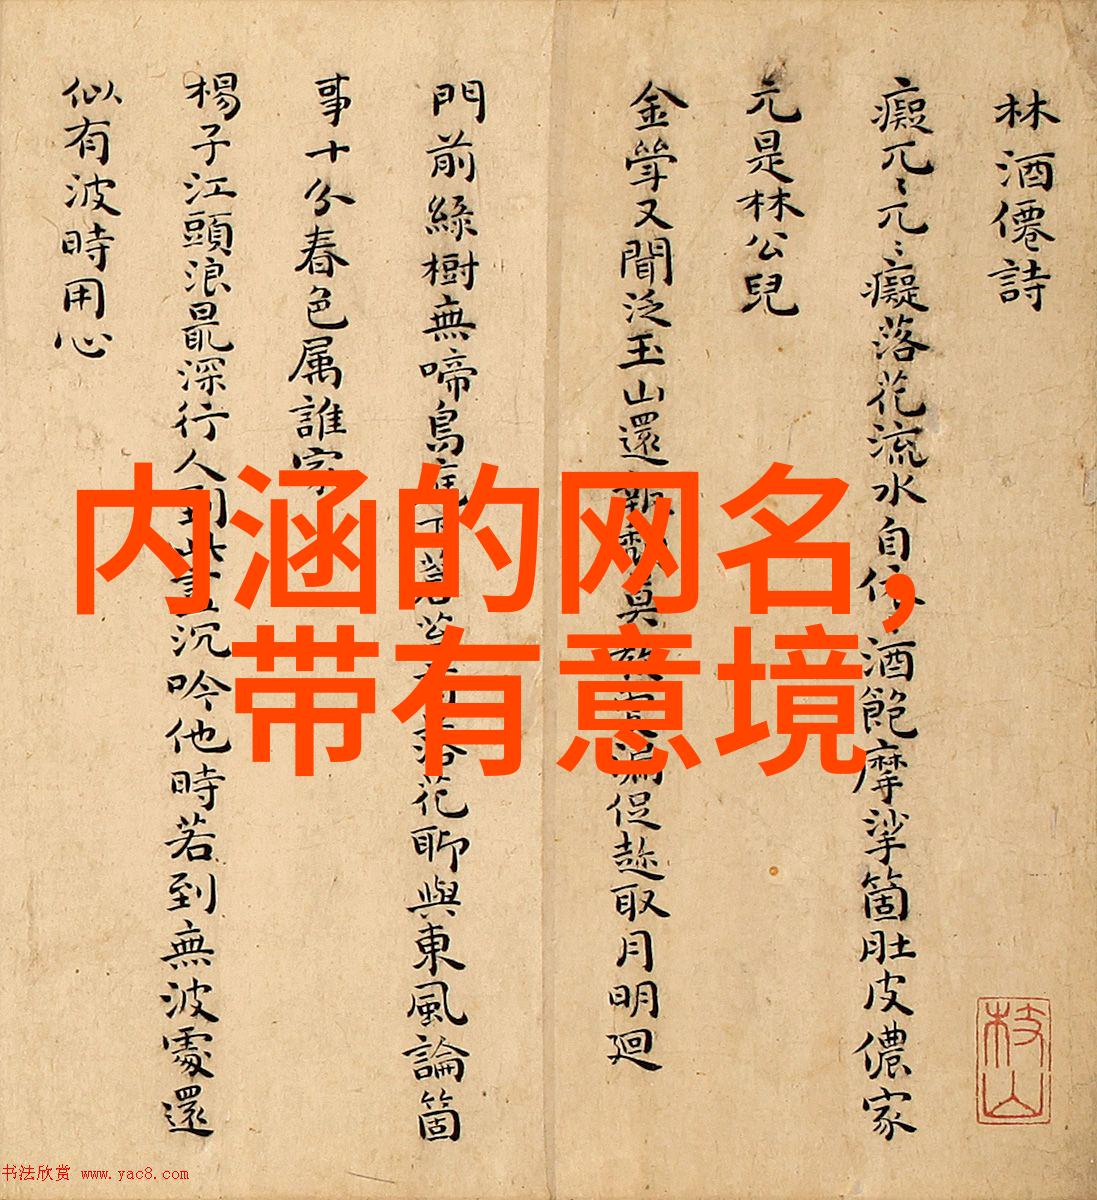 林酒僊詩
癡兀〻兀〻癡落花流水自依酒飽摩挲箇肚皮儂家
元是林公兒
金斝又聞泛玉山還 莫教 漏促趂取月明廻
門前綠樹無啼鳥庭下蒼苔有落花聊與東風論箇
事十分春色属誰家
楊子江頭浪最深行人到此盡沉吟他時若到無波處還
似有波時用心
枝山
内涵的网名,
带有意境
书法欣赏 www.yac8.com